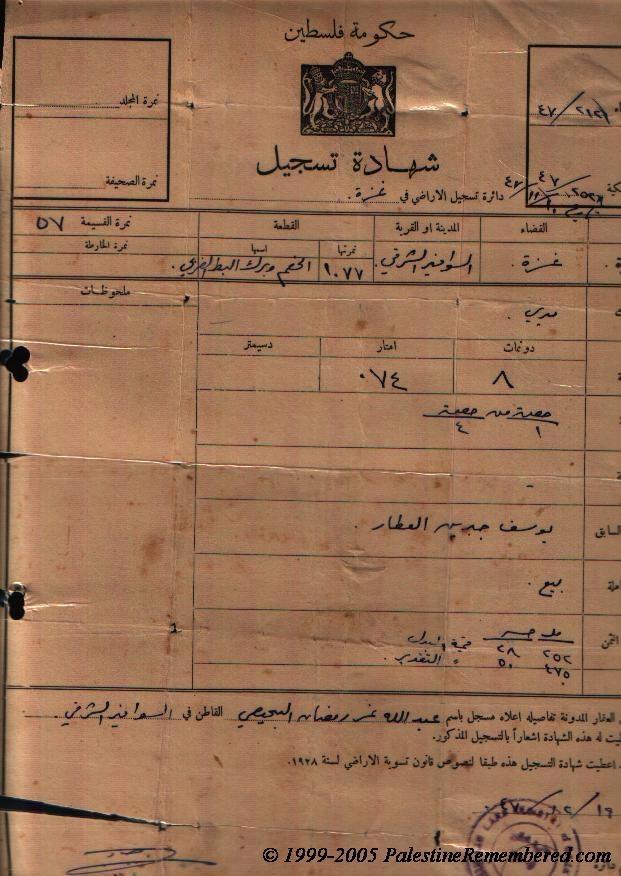 حكومة فلسطين
نمرة المجلد
٢١٢٦ / ٤٧
شهادة تسجيل
نمرة الصحيفة
دائرة تسجيل الاراضي في غزة.
القضاء
المدينة او القرية
القطعة
نمرة القسيمة ٥٧
نمرتها
اسمها
نمرة الخارطة
غزة.
السوافير الشرقي.
١٠٧٧
ملحوظات
ميري.
دونمات
امتار
دسيمتر
٨
٠٧٤
حصة من حصة
١ ٤
السابق
يوسف جبرين العطار.
بيع.
الثمن
مل جنيه
٢٥٢ ٢٨
٤٧٥ ٥٠
قيمة البدل
" التقدير.
العقار المدونة تفاصيله اعلاه مسجل باسم عبد الله نمر رمضان البحيصي القاطن في السوافير الشرقي.
له هذه الشهادة اشعاراً بالتسجيل المذكور.
اعطيت شهادة التسجيل هذه طبقا لنصوص قانون تسوية الاراضي لسنة ١٩٢٨.
١٦ / ١٢ / ٤٧
LAND REGISTRY
دائرة
© 1999-2005 PalestineRemembered.com